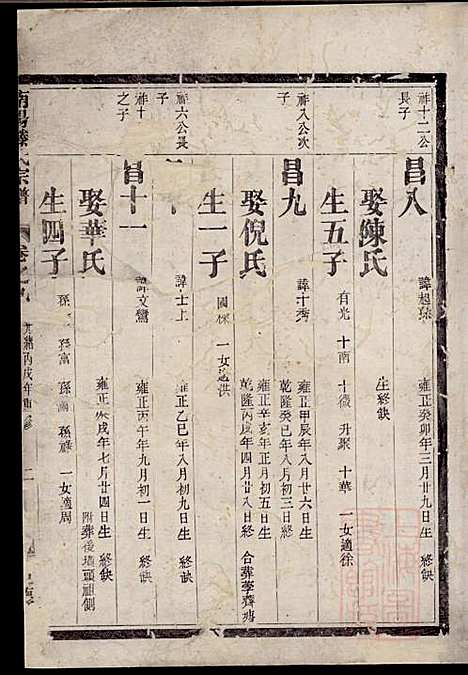 祥十二公
長子
昌八
諱起孫
雍正癸卯年三月廿九日生 終缺
娶陳氏
生終缺
生五子
有光 十南 十徵 升聚 十華 一女適徐
祥八公次
子
昌九
諱十秀
雍正甲辰年八月廿六日生
乾隆癸巳年八月初三日終
娶倪氏
雍正辛亥年正月初五日生
乾隆丙戌年四月廿八日終
合葬學齊
生一子
國保 一女適洪
祥六公長
子
諱士上
雍正乙巳年八月初九日生 終缺
祥十
之子
昌十一
諱文鸞
雍正丙午年九月初一日生 終缺
娶華氏
雍正 戌年七月廿四日生 終缺
附葬後 頭祖側
生四子
孫 孫富 孫 孫 一女適周
南陽 氏宗譜
卷之九
丙戌年重修
二